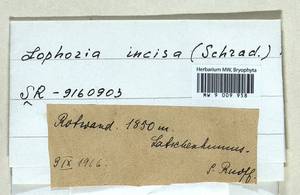 Lophozia incisa (Schrad.)
Herbarium MW, Bryophyta
MW 9 009 958
SR - 9160903
Rotwand. 1850 m.
Latschenhumus.
9 IX 1916.
S. Ruoff.